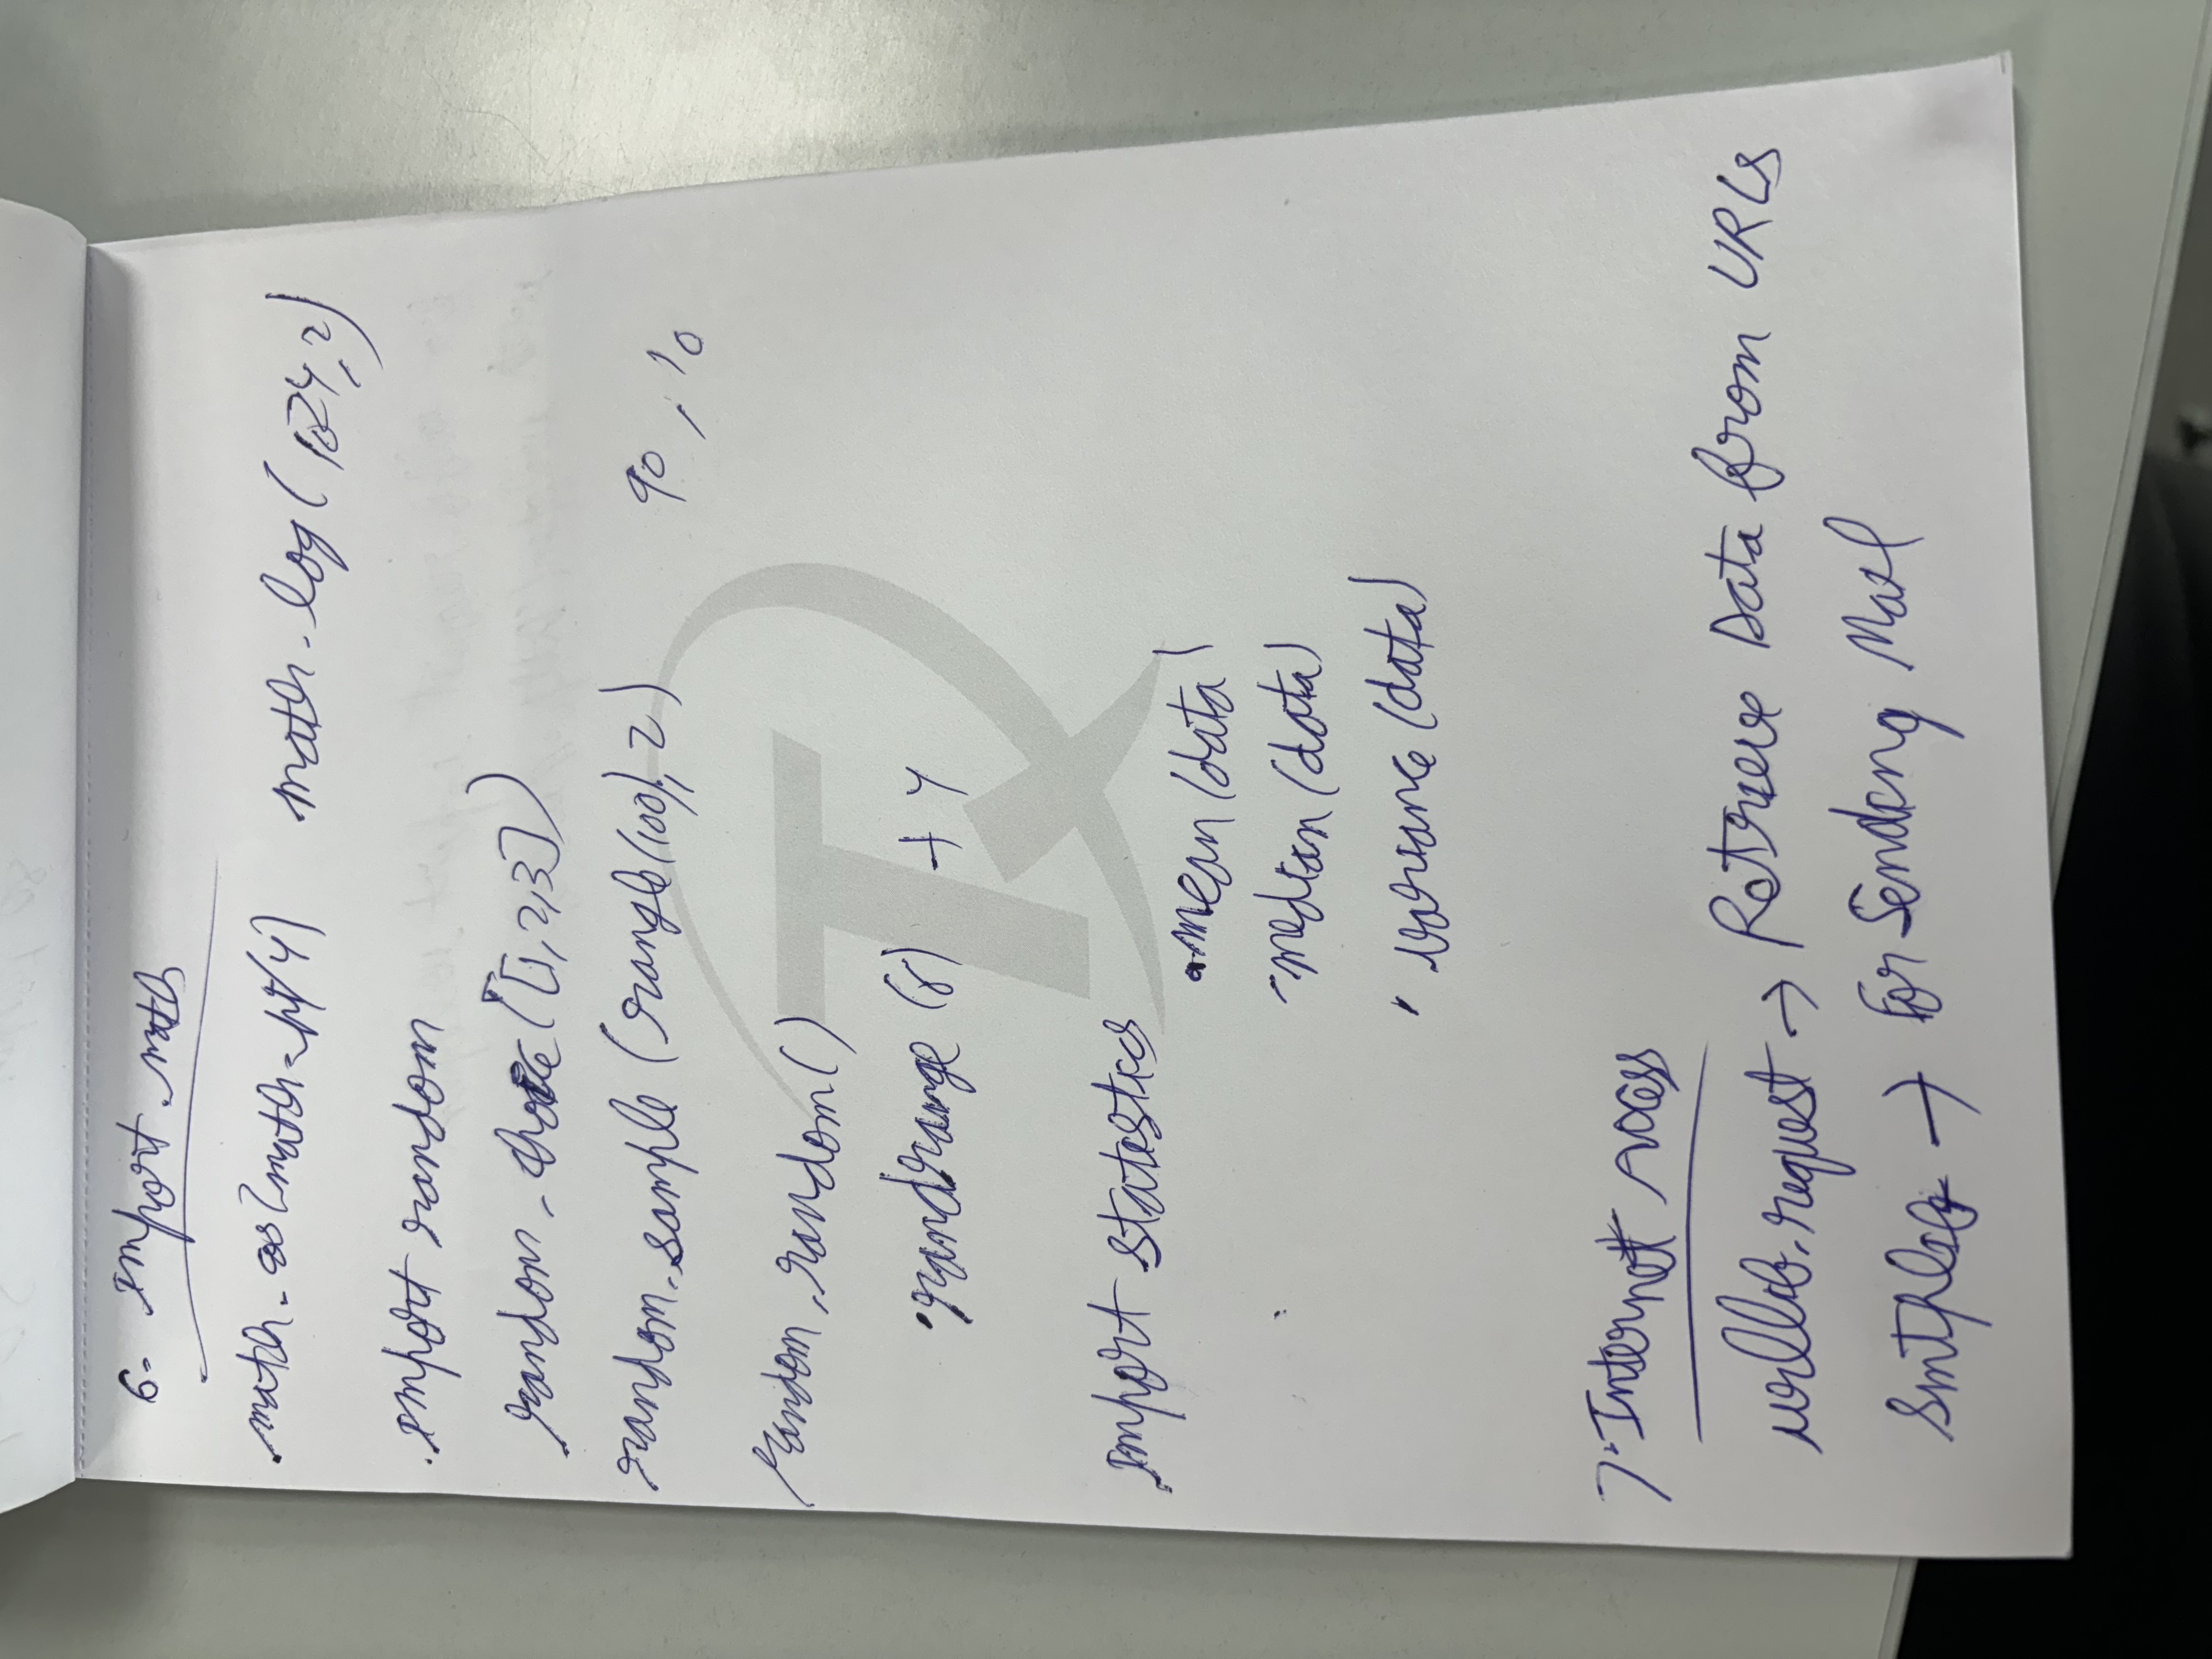 6. Import math
. math. cos(math.pi/4) math.log(1024,2)
. import random
random.choice([1,2,3])
random.sample (range(100), 2) 90, 10
random.random()
.randrange (8) + 4
import statistics
.mean(data)
.median(data)
.variance(data)
7. Internet Access
urllib.request → Retrieve Data from URLs
smtplib → For Sending Mail
TX